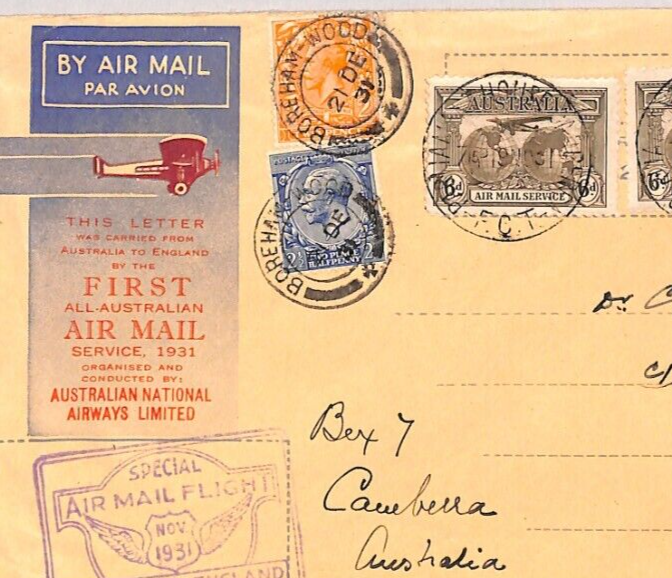 BY AIR MAIL
PAR AVION
THIS LETTER
WAS CARRIED FROM
AUSTRALIA TO ENGLAND
BY THE
FIRST
ALL-AUSTRALIAN
AIR MAIL
SERVICE, 1931
ORGANISED AND
CONDUCTED BY:
AUSTRALIAN NATIONAL
AIRWAYS LIMITED
BOREHAM-WOOD
21 DE
31
BOREHAM-WOOD
DE
31
2½
2½
HALFPENNY
AUSTRALIA
6d
6d
AIR MAIL SERVICE
F.C.T.
6d
Dr. C
c/
Box 7
Canberra
Australia
SPECIAL
AIR MAIL FLIGHT
NOV
1931
ENGLAND